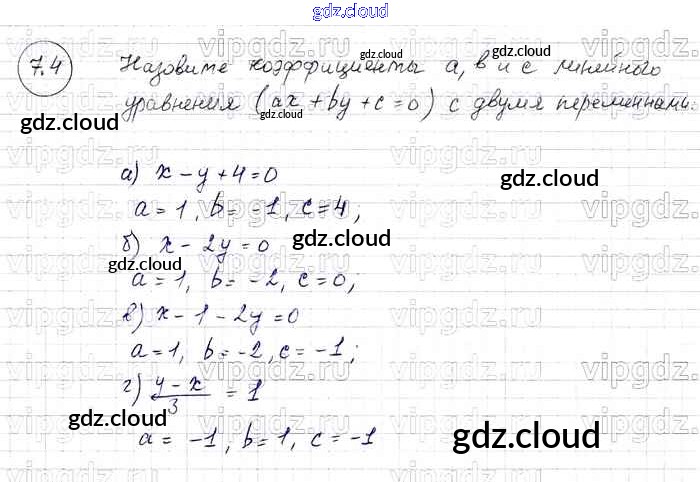 gdz.cloud
7.4 Назовите коэффициенты a, в и с линейного
уравнения (ax + by + c = 0) с двумя переменными.
а) x - y + 4 = 0
a = 1, b = -1, c = 4,
б) x - 2y = 0
a = 1, b = -2, c = 0;
в) x - 1 - 2y = 0
a = 1, b = -2, c = -1;
г) (y - x)/3 = 1
a = -1, b = 1, c = -1
gdz.cloud
gdz.cloud
gdz.cloud
gdz.cloud
gdz.cloud
gdz.cloud
gdz.cloud
gdz.cloud
gdz.cloud